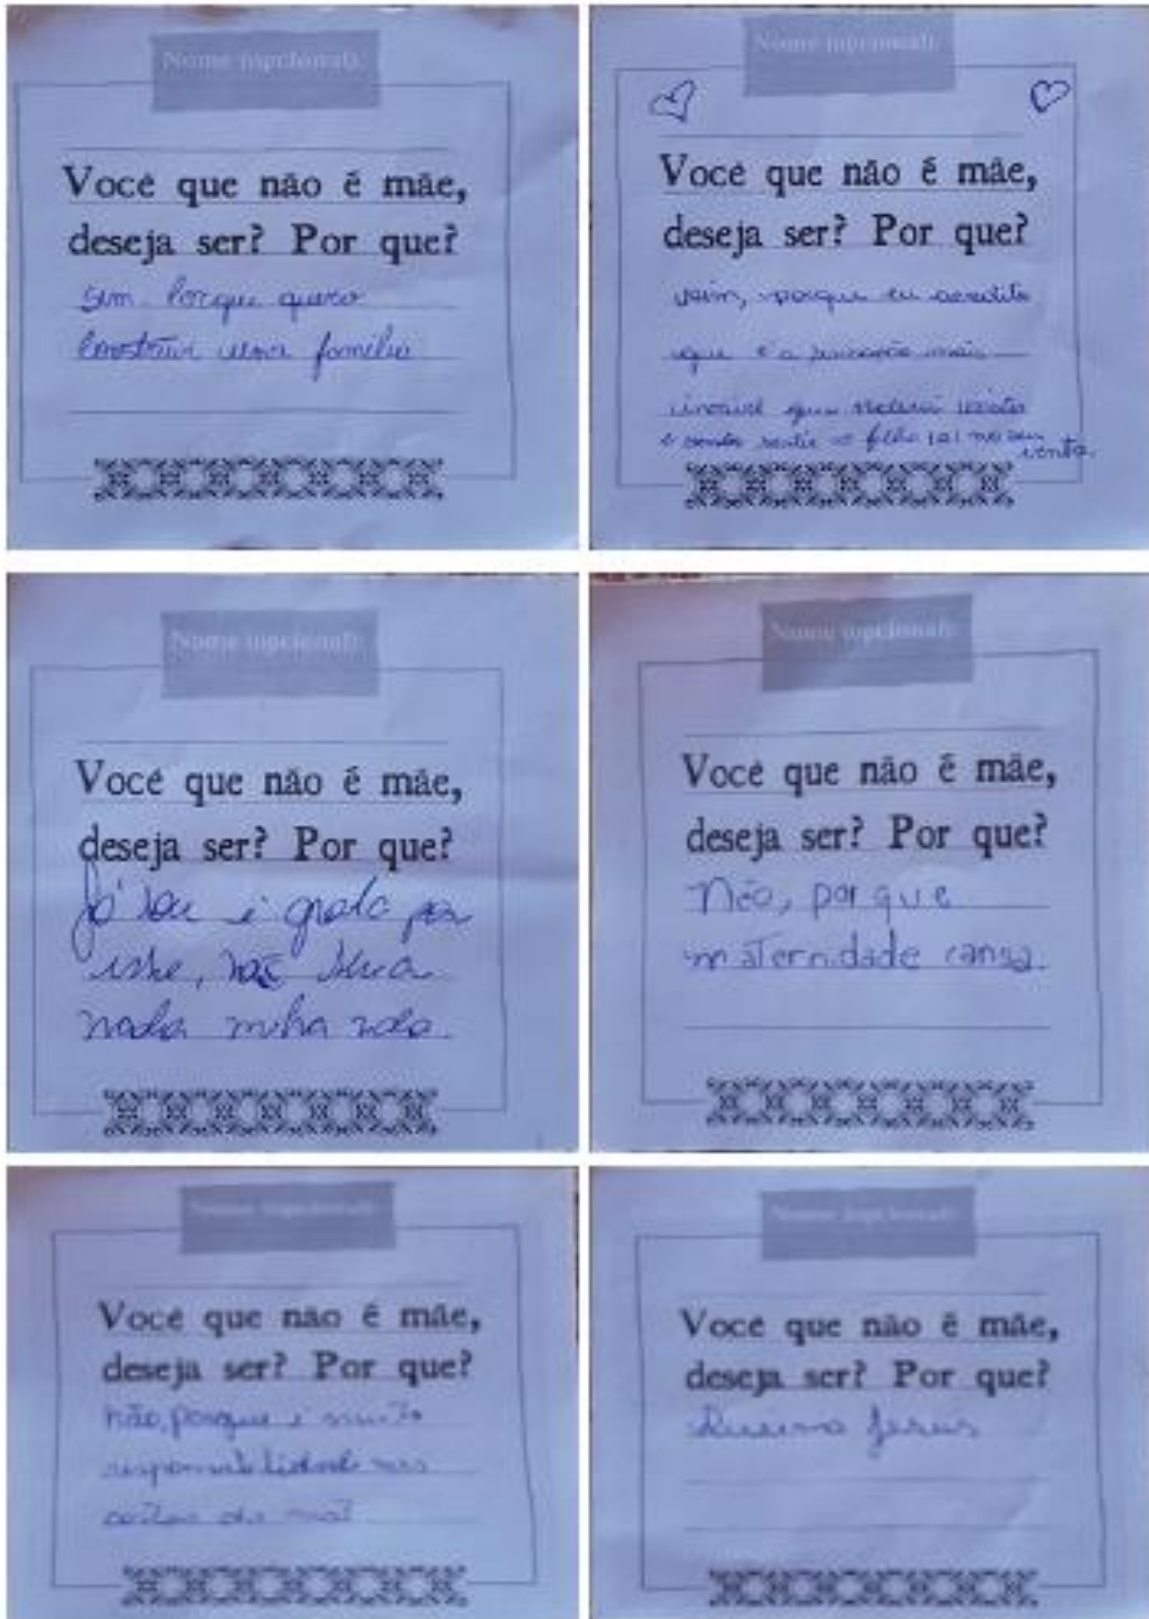 Nome (opcional):
Você que não é mãe,
deseja ser? Por que?
sim Porque quero
construir uma familia
Nome (opcional):
Você que não é mãe,
deseja ser? Por que?
sim, porque eu acredito
que é a mais
incrivel que
sentir o filho (a) no seu
ventre
Nome (opcional):
Você que não é mãe,
deseja ser? Por que?
Já sou e grata por
isso,
nada minha
Nome (opcional):
Você que não é mãe,
deseja ser? Por que?
Não, por que
maternidade cansa.
Nome (opcional):
Você que não é mãe,
deseja ser? Por que?
não, porque é muita
responsabilidade nas
costas da mãe
Nome (opcional):
Você que não é mãe,
deseja ser? Por que?
Jesus